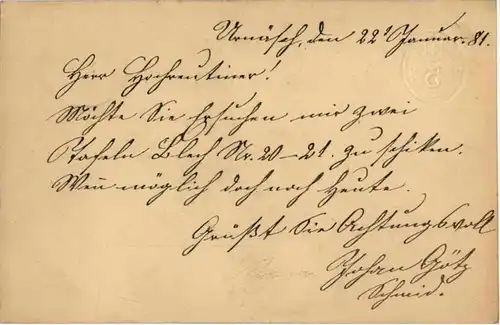 Urnäsch, den 22t Januar. 81.
Herr Hochreutiner!
Möchte Sie Ersuchen mir zwei
Tafeln Blech Nr. 20–21. zu schiken.
Wen̄ möglich doch noch Heute.
Grüßt Sie Achtungsvoll
Johan Götz
Schmid.